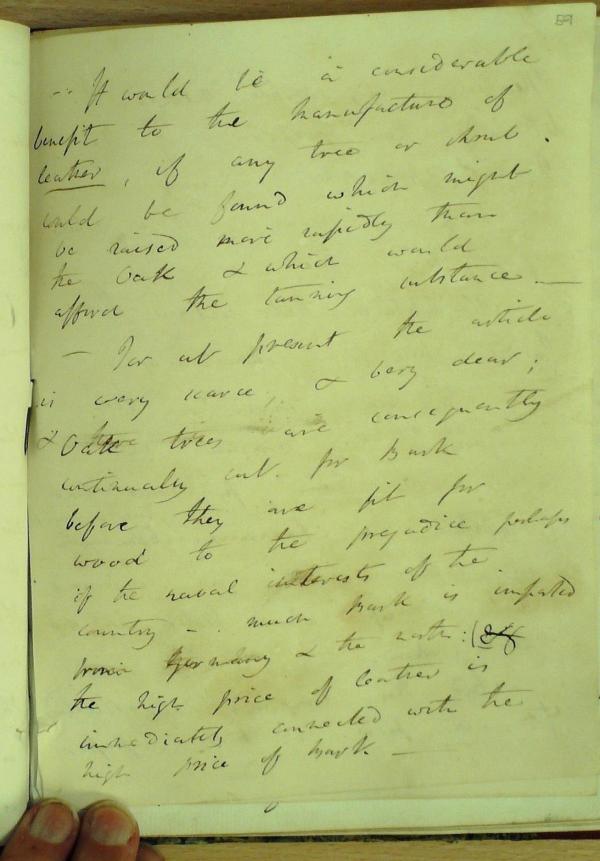 59
-- It would be a considerable
benefit to the manufacture of
leather, if any tree or shrub
could be found which might
be raised more rapidly than
the Oak & which would
afford the tanning substance —
— For at present the article
is very scarce, & very dear;
& Oak trees are consequently
continually cut for Bark
before they are fit for
wood to the prejudice perhaps
of the naval interests of the
country - much Bark is imported
from Germany & the north: (
the high price of leather is
immediately connected with the
high price of Bark —